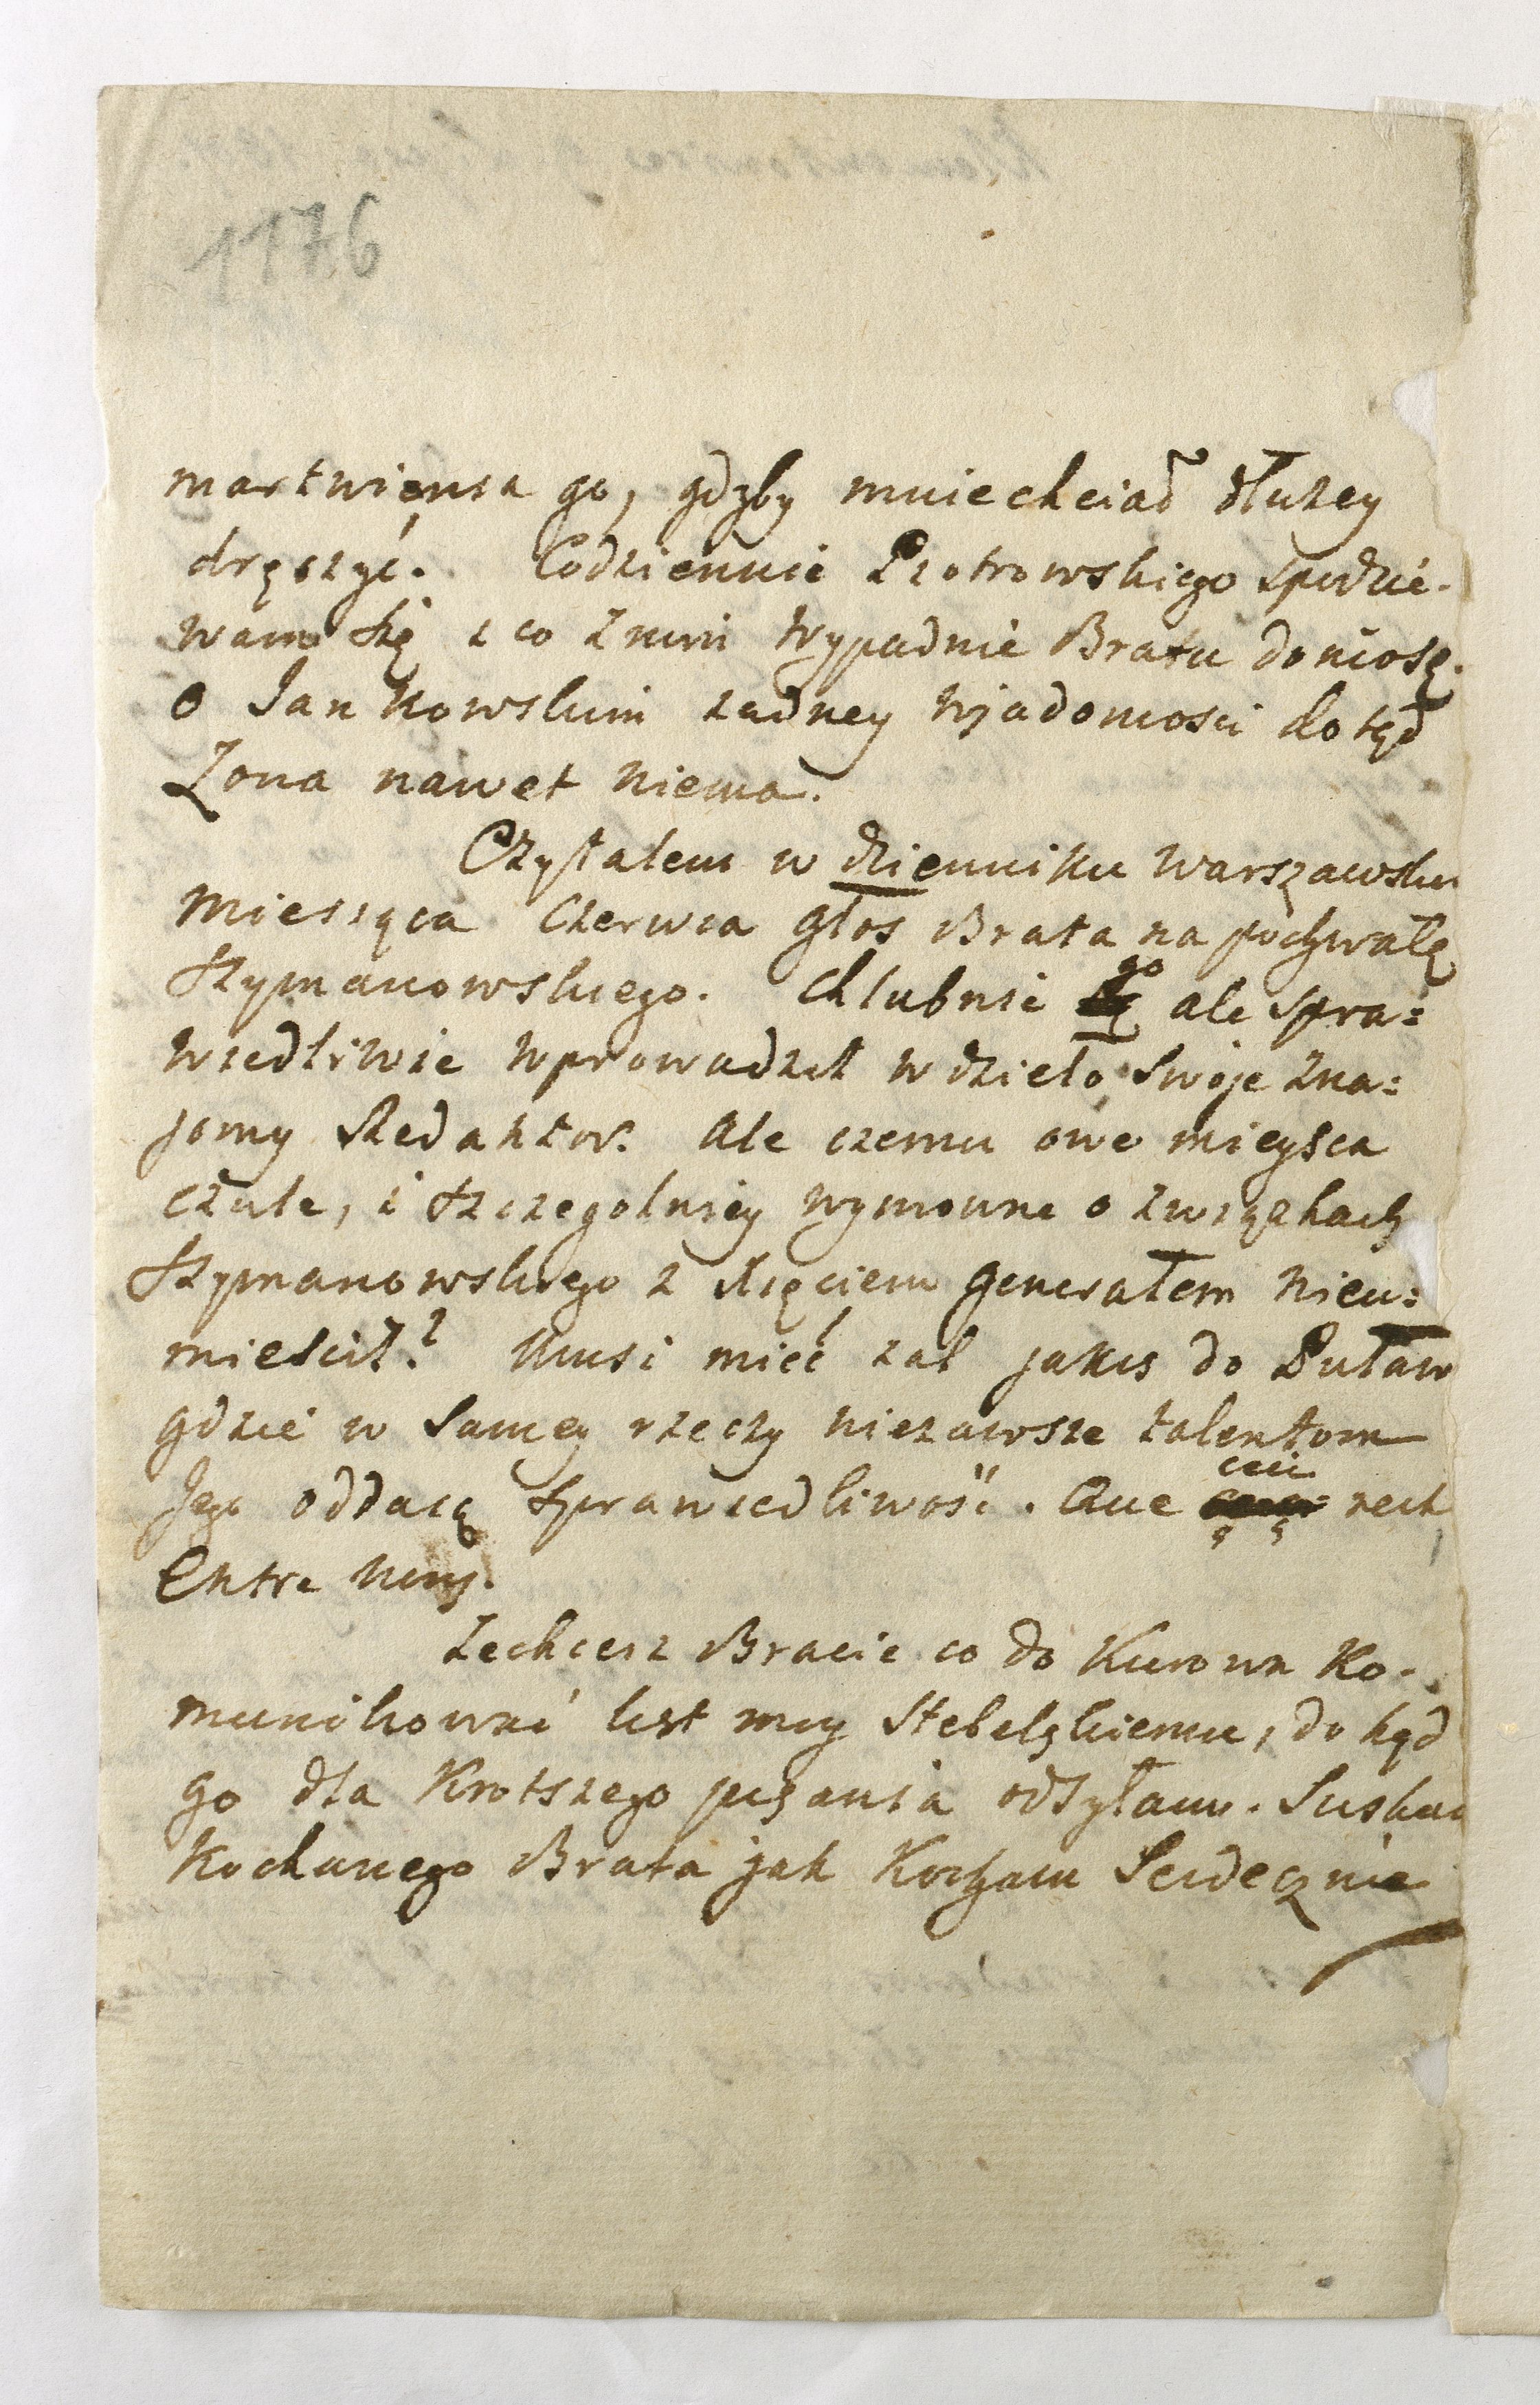 1176
martwienia go, gdyby mnie chciał dłużey
dręczyć. Codziennie Piotrowskiego spodzie-
wam się i co z nim wypadnie Bratu doniosę.
O Jankowskim żadney wiadomości dotąd
Żona nawet niema.
Czytałem w dzienniku Warszawskim
miesiąca Czerwca głos Brata na pochwałę
Szymanowskiego. Chlubnie go ale spra=
wiedliwie wprowadził w dzieło swoje zna=
jomy Redaktor. Ale czemu owe mieysca
czułe, i szczegolniey wymowne o związkach
Szymanowskiego z Xięciem Generałem nieu=
mieścił? Musi mieć żal jakis do Puław
gdzie w samey rzeczy niezawsze talentom
Jego oddaią sprawiedliwość. Que ceci rest
Entre nous.
Zechcesz Bracie co do Kurowa Ko-
munikować list moy Stebelskiemu, do kąd
go dla krotszego pisania odsyłam. Sciskam
Kochanego Brata jak Kocham Serdecznie